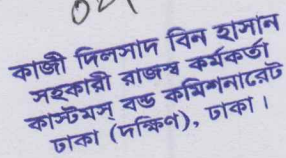 কাজী দিলসাদ বিন হাসান
সহকারী রাজস্ব কর্মকর্তা
কাস্টমস্ বন্ড কমিশনারেট
ঢাকা (দক্ষিণ), ঢাকা।